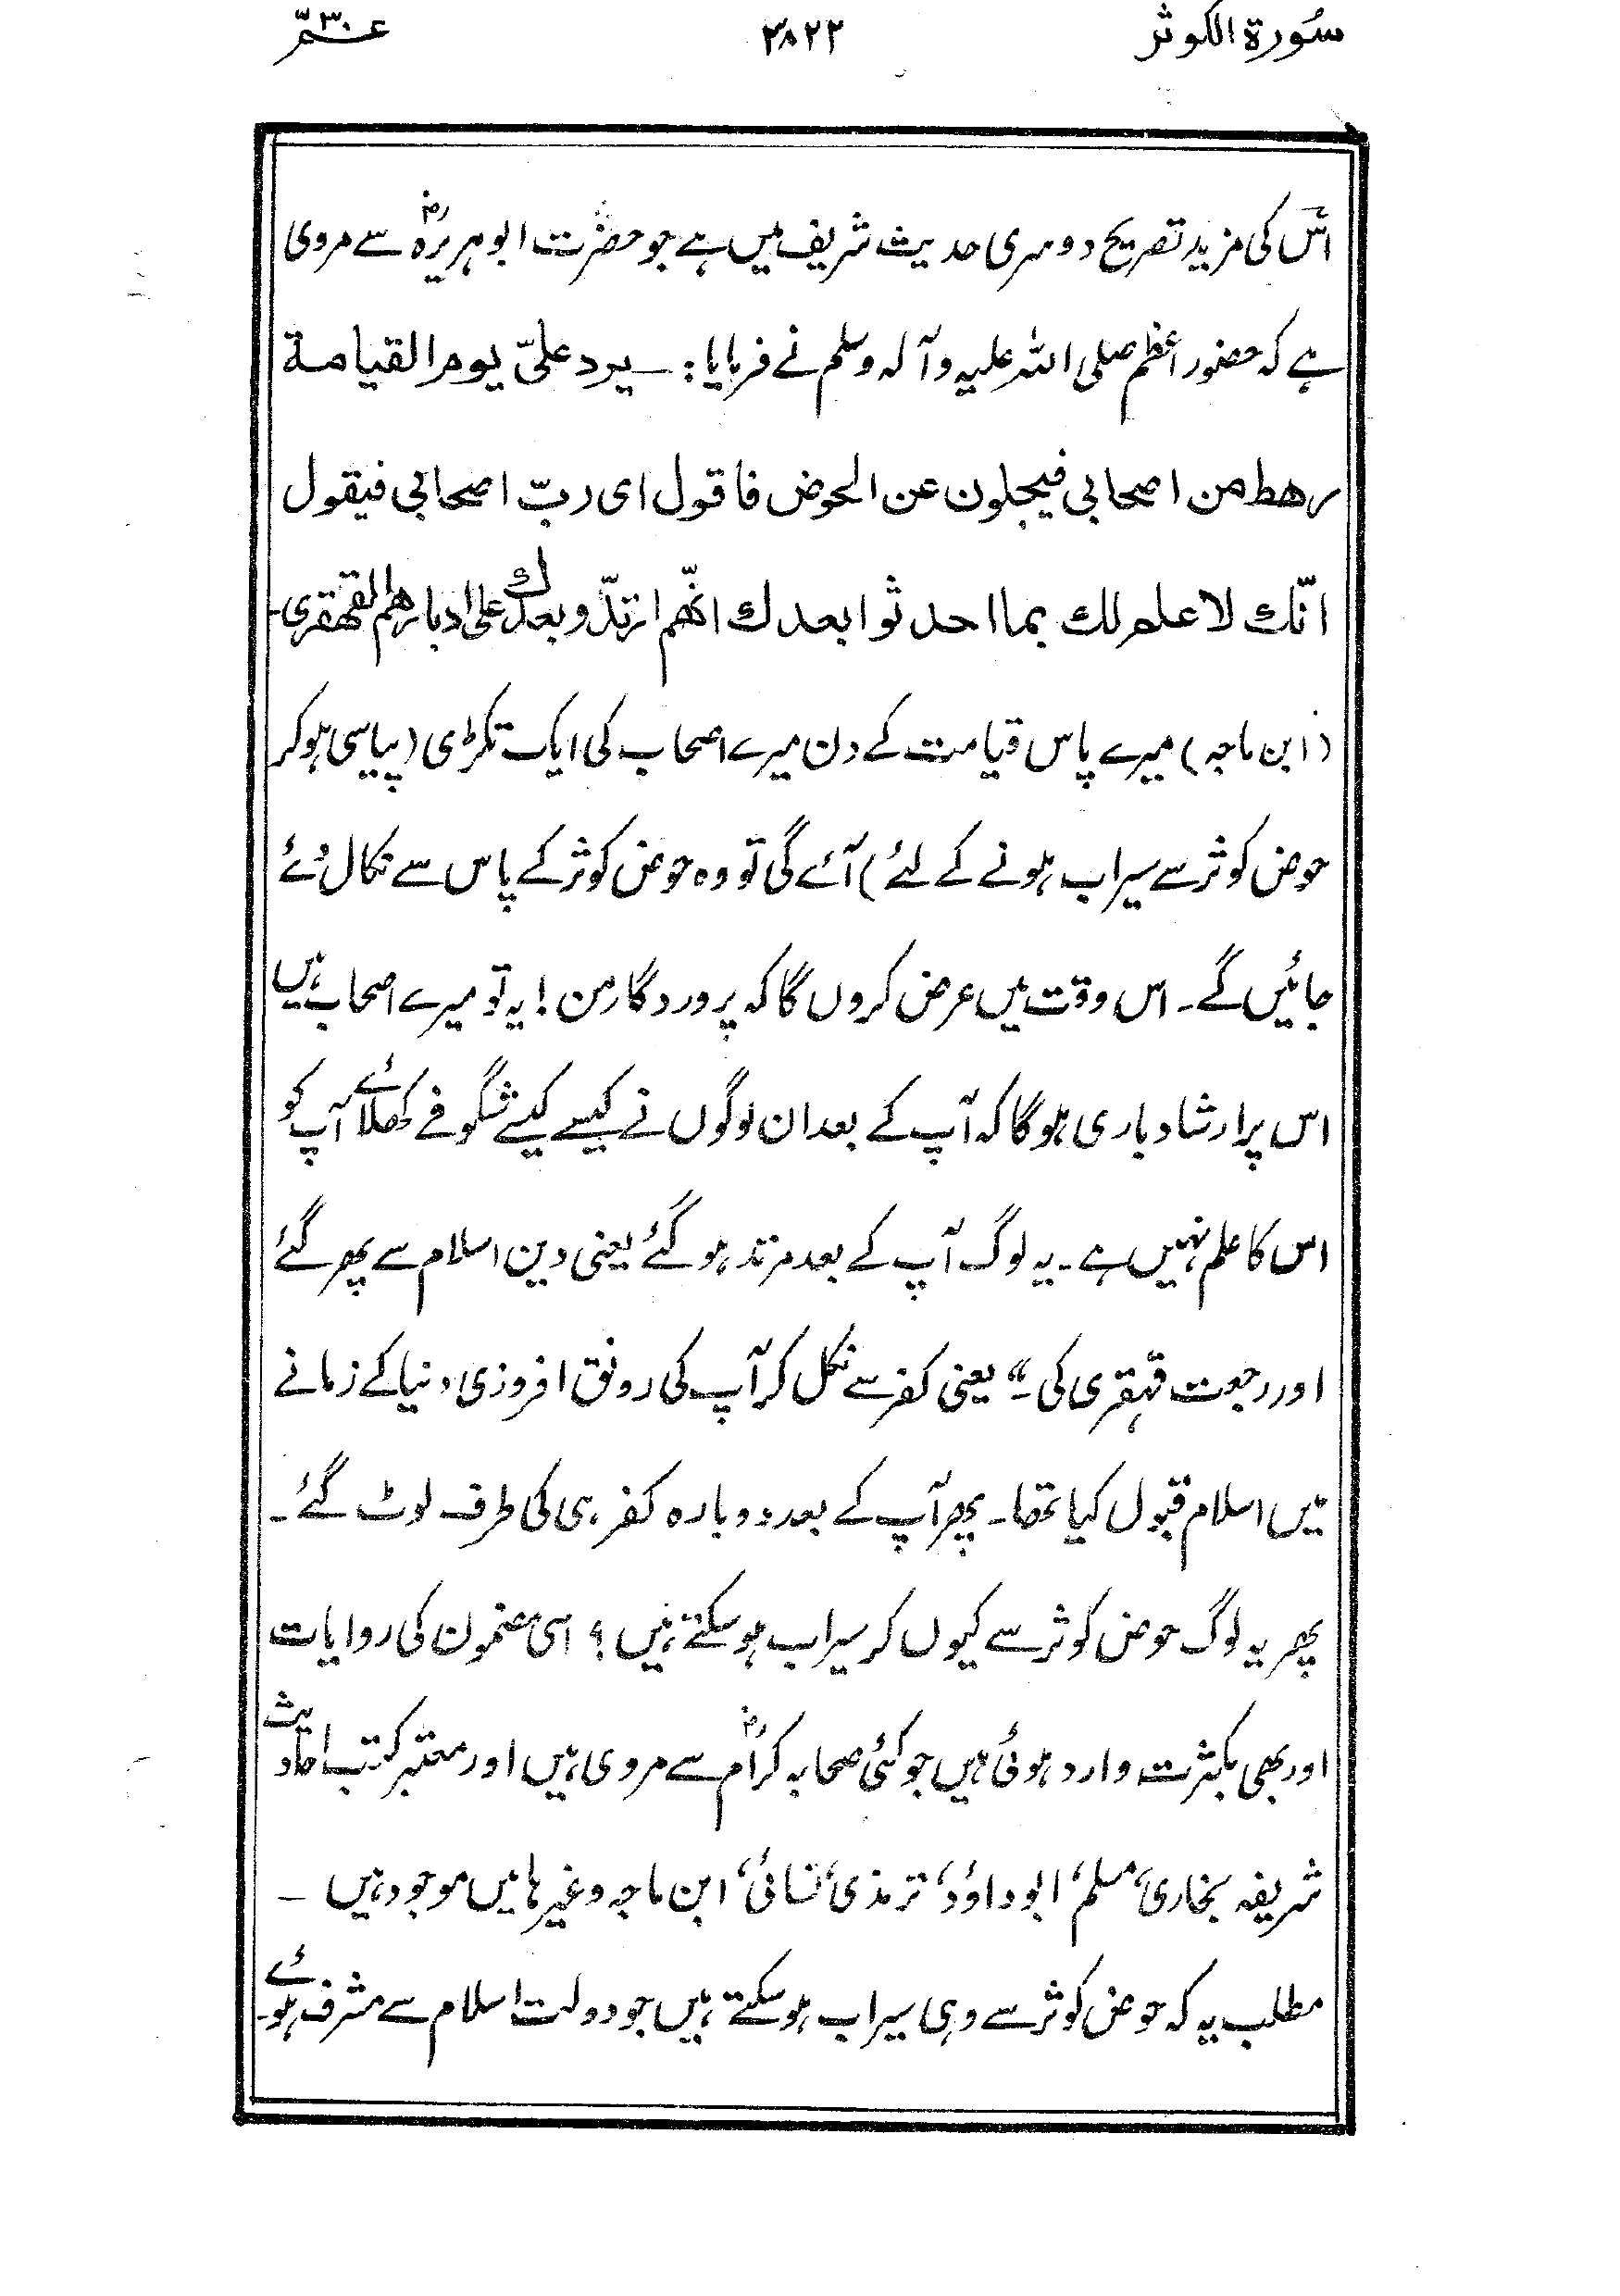 سُورة الکوثر ۳۸۲۲ عمّ ۳۰
اس کی مزید تصریح دوسری حدیث شریف میں ہے جو حضرت ابوہریرہؓ سے مروی
ہے کہ حضور اعظم صلی اللہ علیہ وآلہ وسلم نے فرمایا :۔ یرد علیّ یوم القیامة
رھط من اصحابی فیجلون عن الحوض فاقول ای ربّ اصحابی فیقول
انّک لا علم لک بما احدثوا بعدک انّھم ارتدّوا بعدک علی ادبارھم القھقری۔
(ابن ماجہ) میرے پاس قیامت کے دن میرے اصحاب کی ایک ٹکڑی (پیاسی ہوکر
حوض کوثر سے سیراب ہونے کے لئے) آئے گی تو وہ حوض کوثر کے پاس سے نکال دُئے
جائیں گے۔ اس وقت میں عرض کروں گا کہ پروردگار من! یہ تو میرے اصحاب ہیں
اس پر ارشاد باری ہوگا کہ آپ کے بعد ان لوگوں نے کیسے کیسے شگوفے کھلائے آپ کو
اس کا علم نہیں ہے۔ یہ لوگ آپ کے بعد مرتد ہوگئے یعنی دین اسلام سے پھر گئے
اور رجعت قہقری کی۔“ یعنی کفر سے نکل کر آپ کی رونق افروزی دنیا کے زمانے
میں اسلام قبول کیا تھا۔ پھر آپ کے بعد دوبارہ کفر ہی کی طرف لوٹ گئے۔
پھر یہ لوگ حوض کوثر سے کیوں کر سیراب ہوسکتے ہیں؟ اسی مضمون کی روایات
اور بھی بکثرت وارد ہوئی ہیں جو کئی صحابہ کرامؓ سے مروی ہیں اور معتبر کتب احادیث
شریفہ بخاری، مسلم، ابوداؤد، ترمذی، نسائی، ابن ماجہ وغیرہا میں موجود ہیں ۔
مطلب یہ کہ حوض کوثر سے وہی سیراب ہوسکتے ہیں جو دولت اسلام سے مشرف ہوئے۔